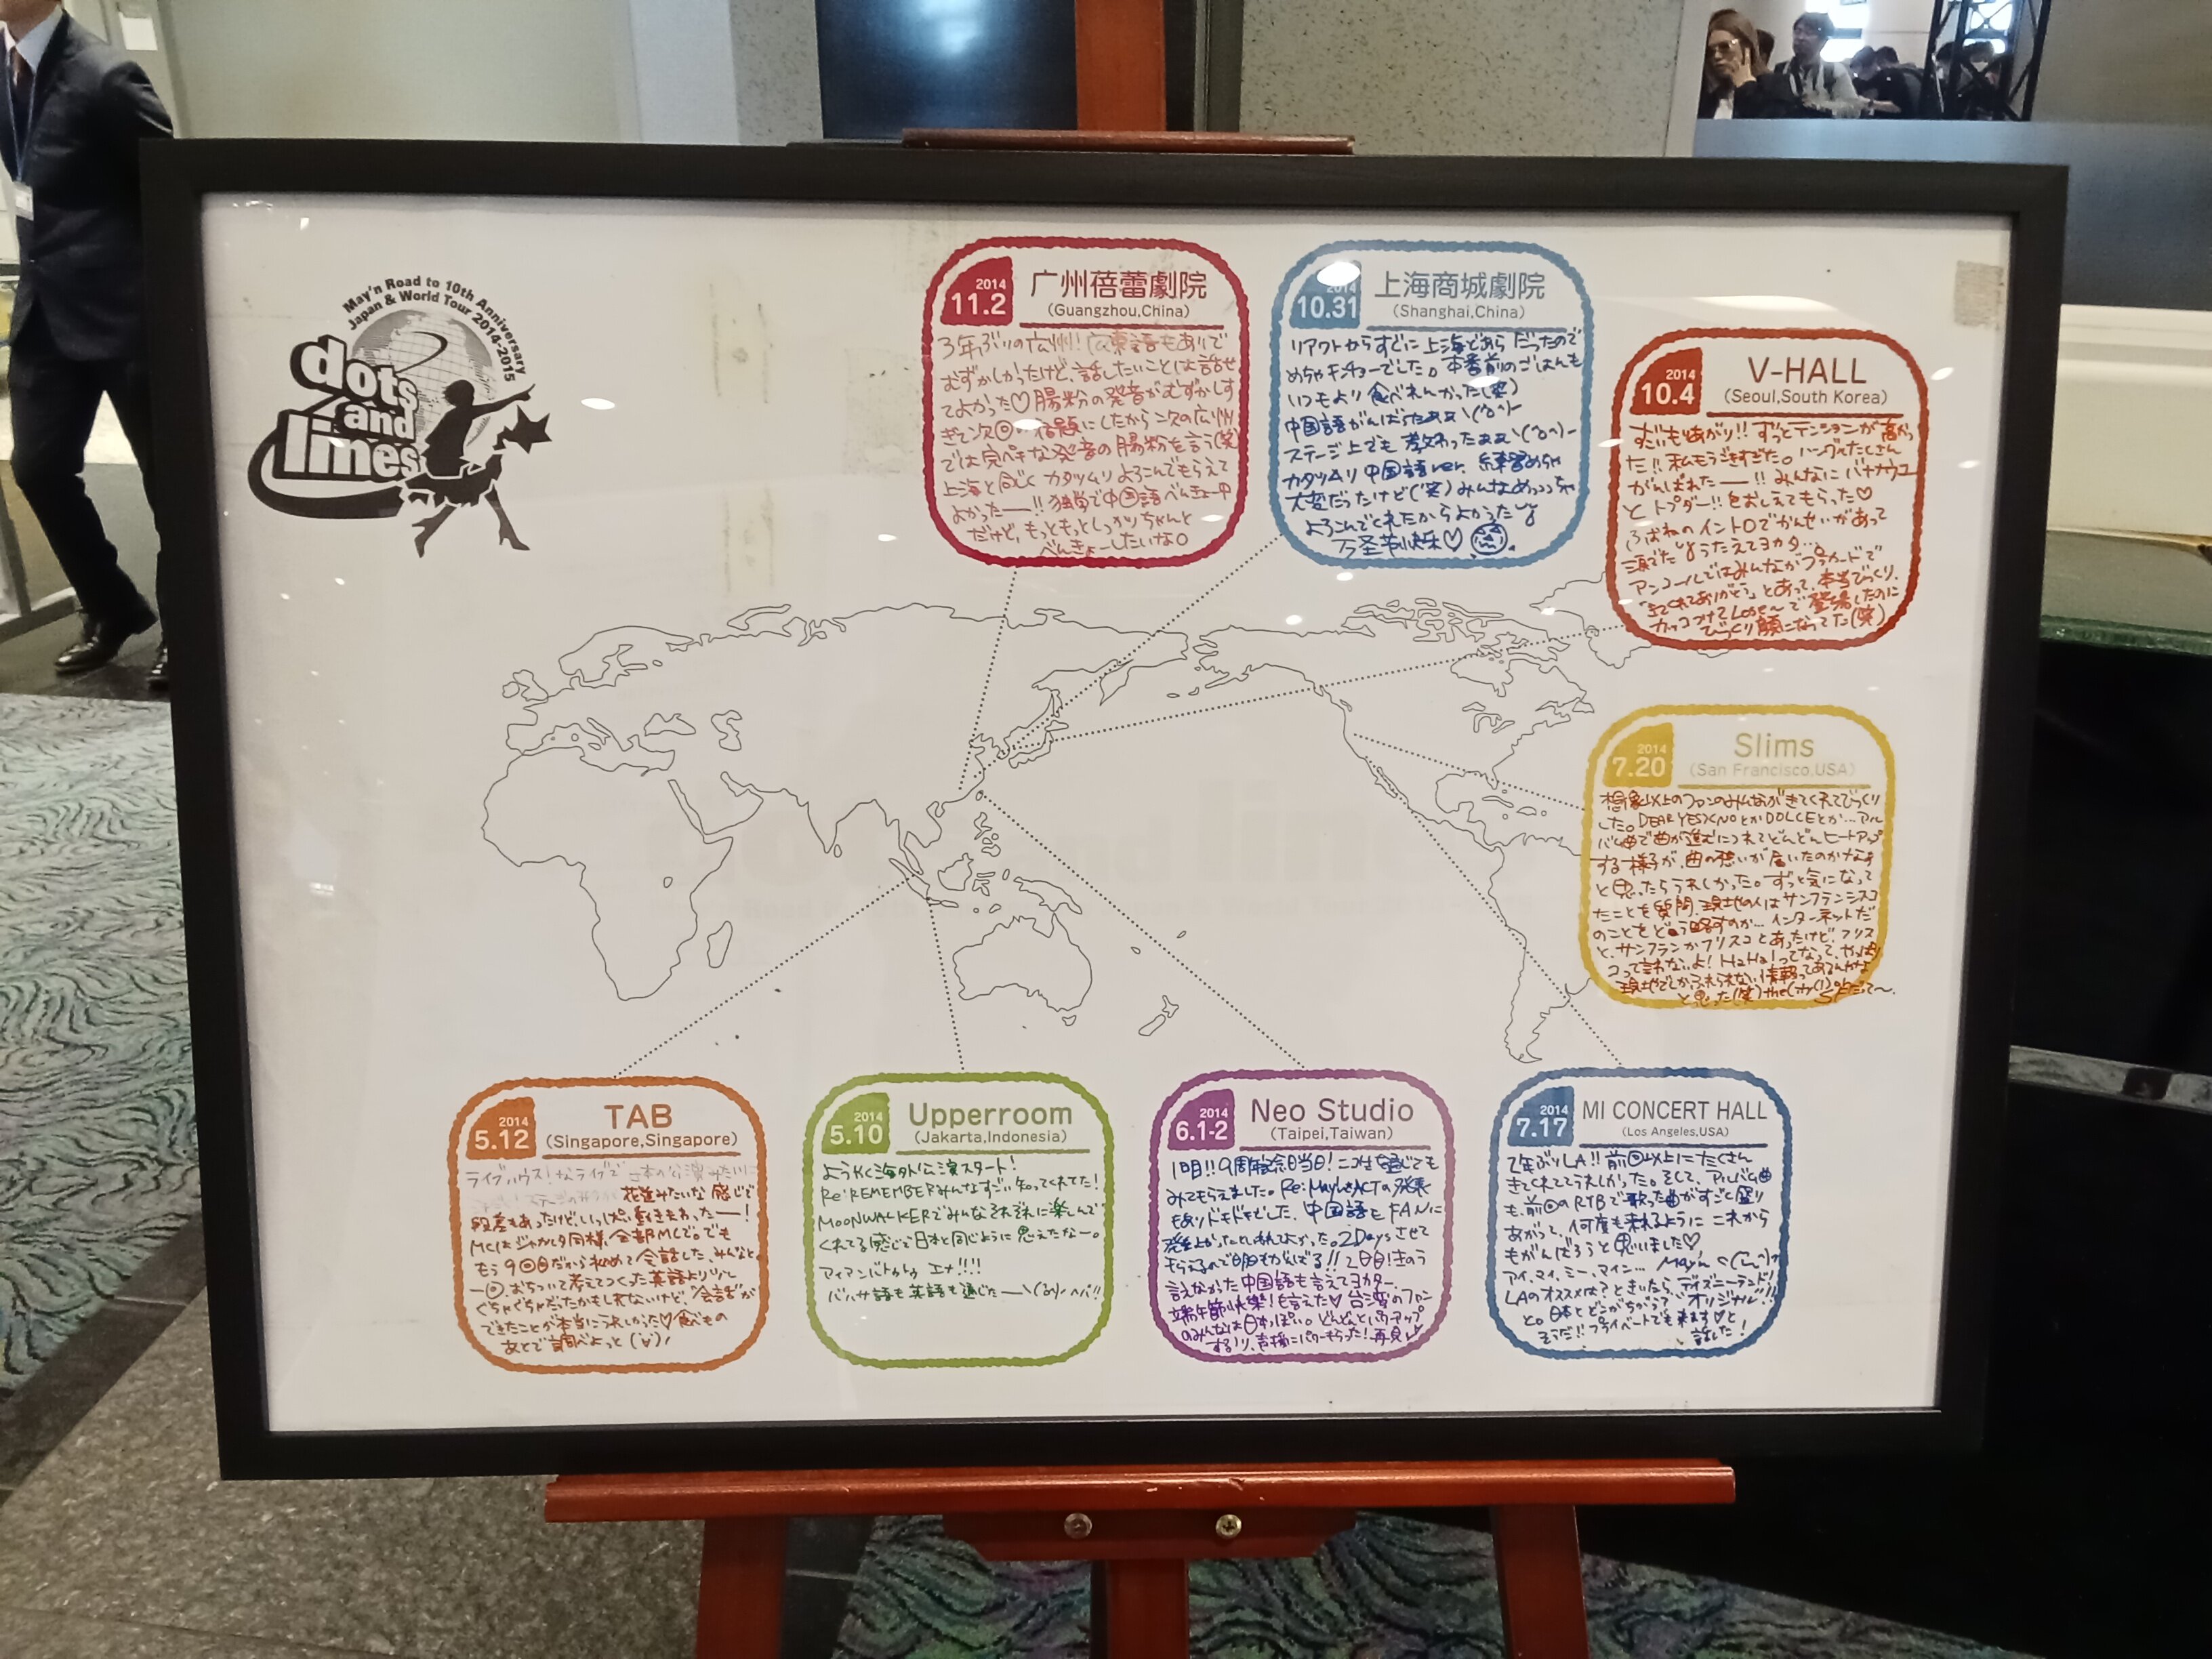 May'n Road to 10th Anniversary
Japan & World Tour 2014-2015
dots
and
lines
2014
11.2
广州蓓蕾劇院
(Guangzhou,China)
3年ぶりの広州！広東語もありで
むずかしかったけど、話したいことは話せ
てよかった♡腸粉の発音がむずかしす
ぎて次回の宿題にしたから次の広州
では完ペキな発音の腸粉を言う(笑)
上海と同じくカタツムリよろこんでもらえて
よかったー!!独学で中国語べんきょー中
だけど、もっともっとしっかりちゃんと
べんきょーしたいな。
2014
10.31
上海商城劇院
(Shanghai,China)
リアウトからすぐに上海 だったので
めちゃキンチョーでした。本番前のごはんも
いつもより食べれんかった(笑)
中国語がんばったぁぁ\(^o^)-
ステージ上でも教わったぁぁ\(^o^)-
カタツムリ中国語ver. 練習めちゃ
大変だったけど(笑)みんなめっっちゃ
よろこんでくれたからよかった
万圣节快乐♡
2014
10.4
V-HALL
(Seoul,South Korea)
もりあがり!!ずっとテンションが高かっ
た!!私もうごきすぎた。ハングルたくさん
がんばれたー!!みんなにバナナウユ
とトッポギ!!をおしえてもらった♡
イントロでかんせいがあって
うたえてヨカタ...
アンコールではみんながプラカードで
「きてくれてありがとう」とあって、本当びっくり。
カッコつけて で登場したのに
びっくり顔になってた(笑)
2014
7.20
Slims
(San Francisco,USA)
想像以上のファンのみんながきてくれてびっくり
した。DEAR YES×NOとかDOLCEとか...アル
バム曲で曲が進むにつれてどんどんヒートアップ
する様子が、曲の想いが届いたのかなぁ
と思ったらうれしかった。ずっと気になって
たことも質問。現地の人はサンフランシスコ
のことをどう略すのか...インターネットだ
と、サンフランかフリスコとあったけど、フリス
コって言わないよ！HaHa!ってなって、やっぱ
現地でしかふれられない情報ってあるんだな
と思った(笑)the City(!)か
SFだって〜。
2014
5.12
TAB
(Singapore,Singapore)
ライブハウス！なライブで日本の公演みたいに
花道みたいな感じで
段差もあったけど、いっぱい動きまわったー！
MCはジャカルタ同様、全部MCで。でも
もう9回目だから初めて会話した、みんなと。
一回、おちついて考えてつくった英語より
ぐちゃぐちゃだったかもしれないけど、"会話"が
できたことが本当にうれしかった♡食べもの
あとで調べよっと
2014
5.10
Upperroom
(Jakarta,Indonesia)
ようやく海外公演スタート！
Re:REMEMBERみんなすごい知ってくれてた！
MOONWALKERでみんなそれぞれに楽しんで
くれてる感じで日本と同じように思えたなー。
アィアンバトゥトゥ エナ!!!!
バハサ語も英語も通じたー
2014
6.1-2
Neo Studio
(Taipei,Taiwan)
1日目!!9周年記念日当日！ニコ生を通じても
みてもらえました。Re:May'n☆ACTの発表
もありドキドキでした、中国語もFANに
発音よかったといわれてよかった。2Daysさせて
もらえるので明日もがんばる!!2日目！きのう
言えなかった中国語も言えてヨカター。
端午節快樂！も言えた♡台湾のファン
のみんなは日本っぽい。どんどんとパワーアップ
するノリ、声援にパワーもらった！再見
2014
7.17
MI CONCERT HALL
(Los Angeles,USA)
2年ぶりLA!!前回以上にたくさん
きてくれててうれしかった。そして、アルバム曲
も、前回のRTBで歌った曲がすごく盛り
あがって、何度も来れるようにこれから
もがんばろうと思いました♡
アイ、マイ、ミー、マイン... May'n
LAのオススメは？ときいたら、ディズニーランド!!
と。日本とどこがちがうって"オリジナル"!!
そうだ!!プライベートでも来ます♡と
話した！